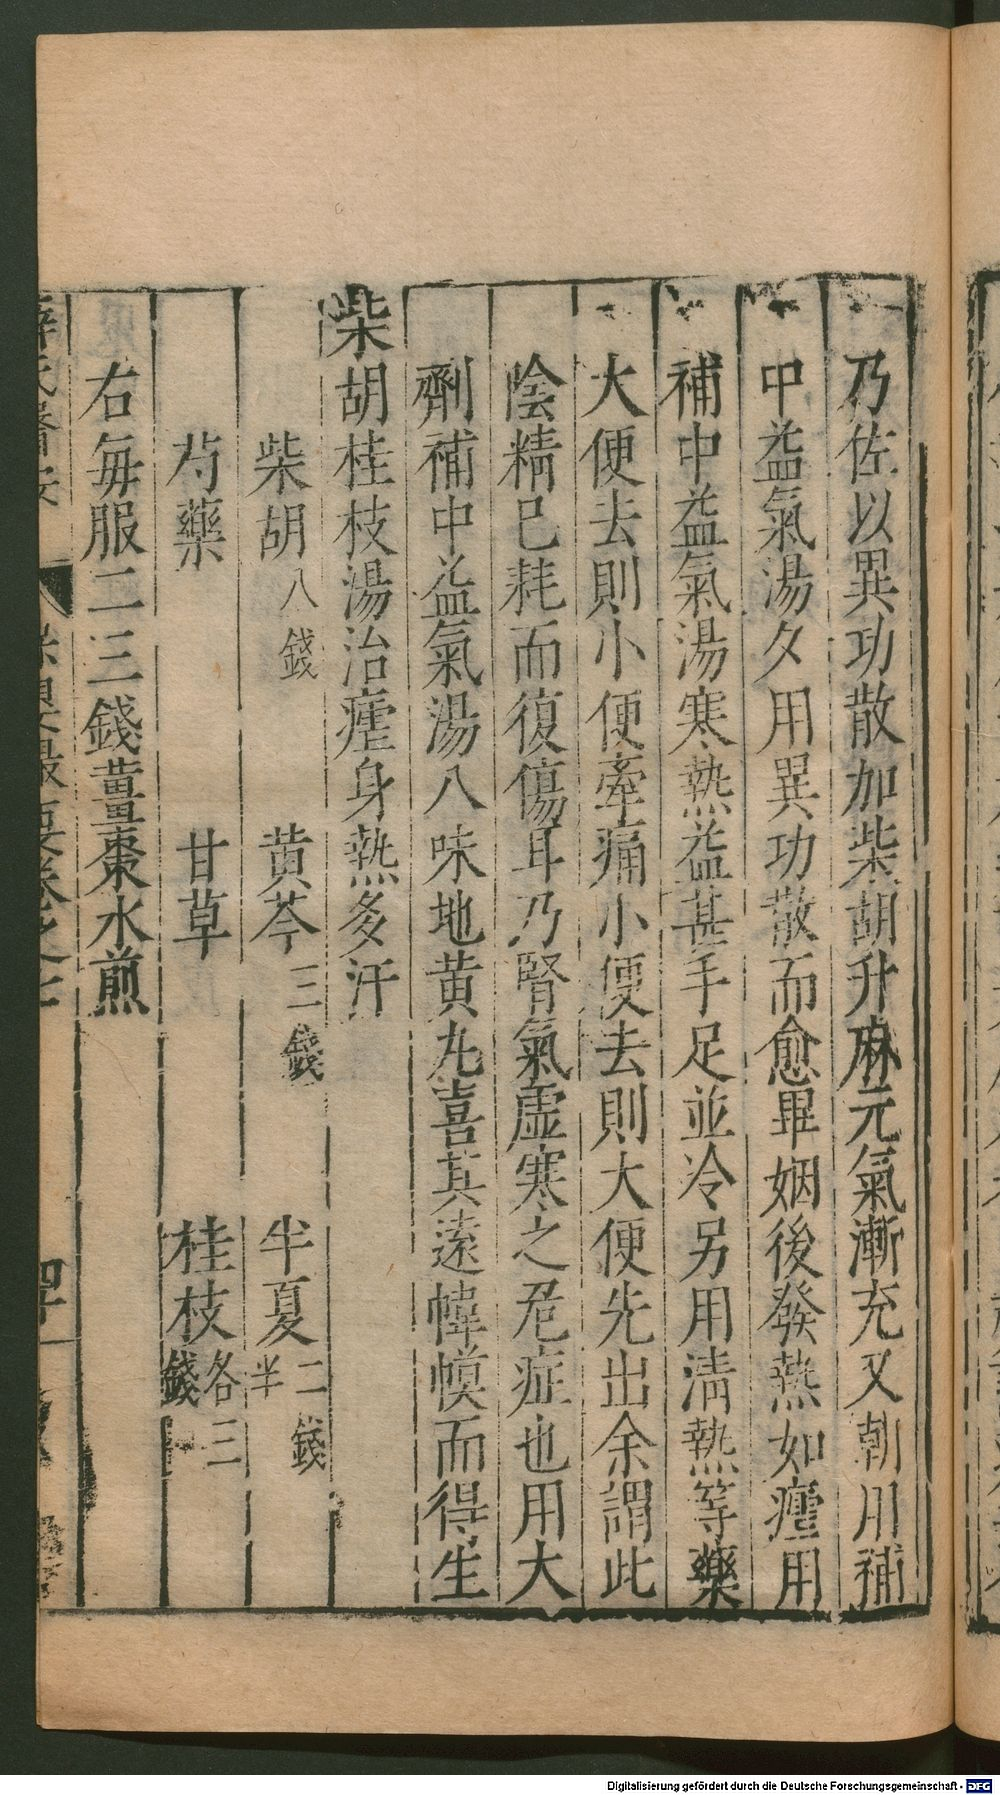 乃佐以異功散加柴胡升麻元氣漸充又朝用補
中益氣湯夕用異功散而愈畢姻後發熱如瘧用
補中益氣湯寒熱益甚手足並冷另用淸熱等藥
大便去則小便牽痛小便去則大便先出余謂此
陰精已耗而復傷耳乃腎氣虛寒之危症也用大
劑補中益氣湯八味地黃丸喜其遠幃幙而得生
柴胡桂枝湯治瘧身熱多汗
柴胡八錢 黃芩三錢 半夏二錢半
芍藥 甘草 桂枝各三錢
右每服二三錢薑棗水煎
薛氏醫案 保嬰撮要卷之七
Digitalisierung gefördert durch die Deutsche Forschungsgemeinschaft - DFG